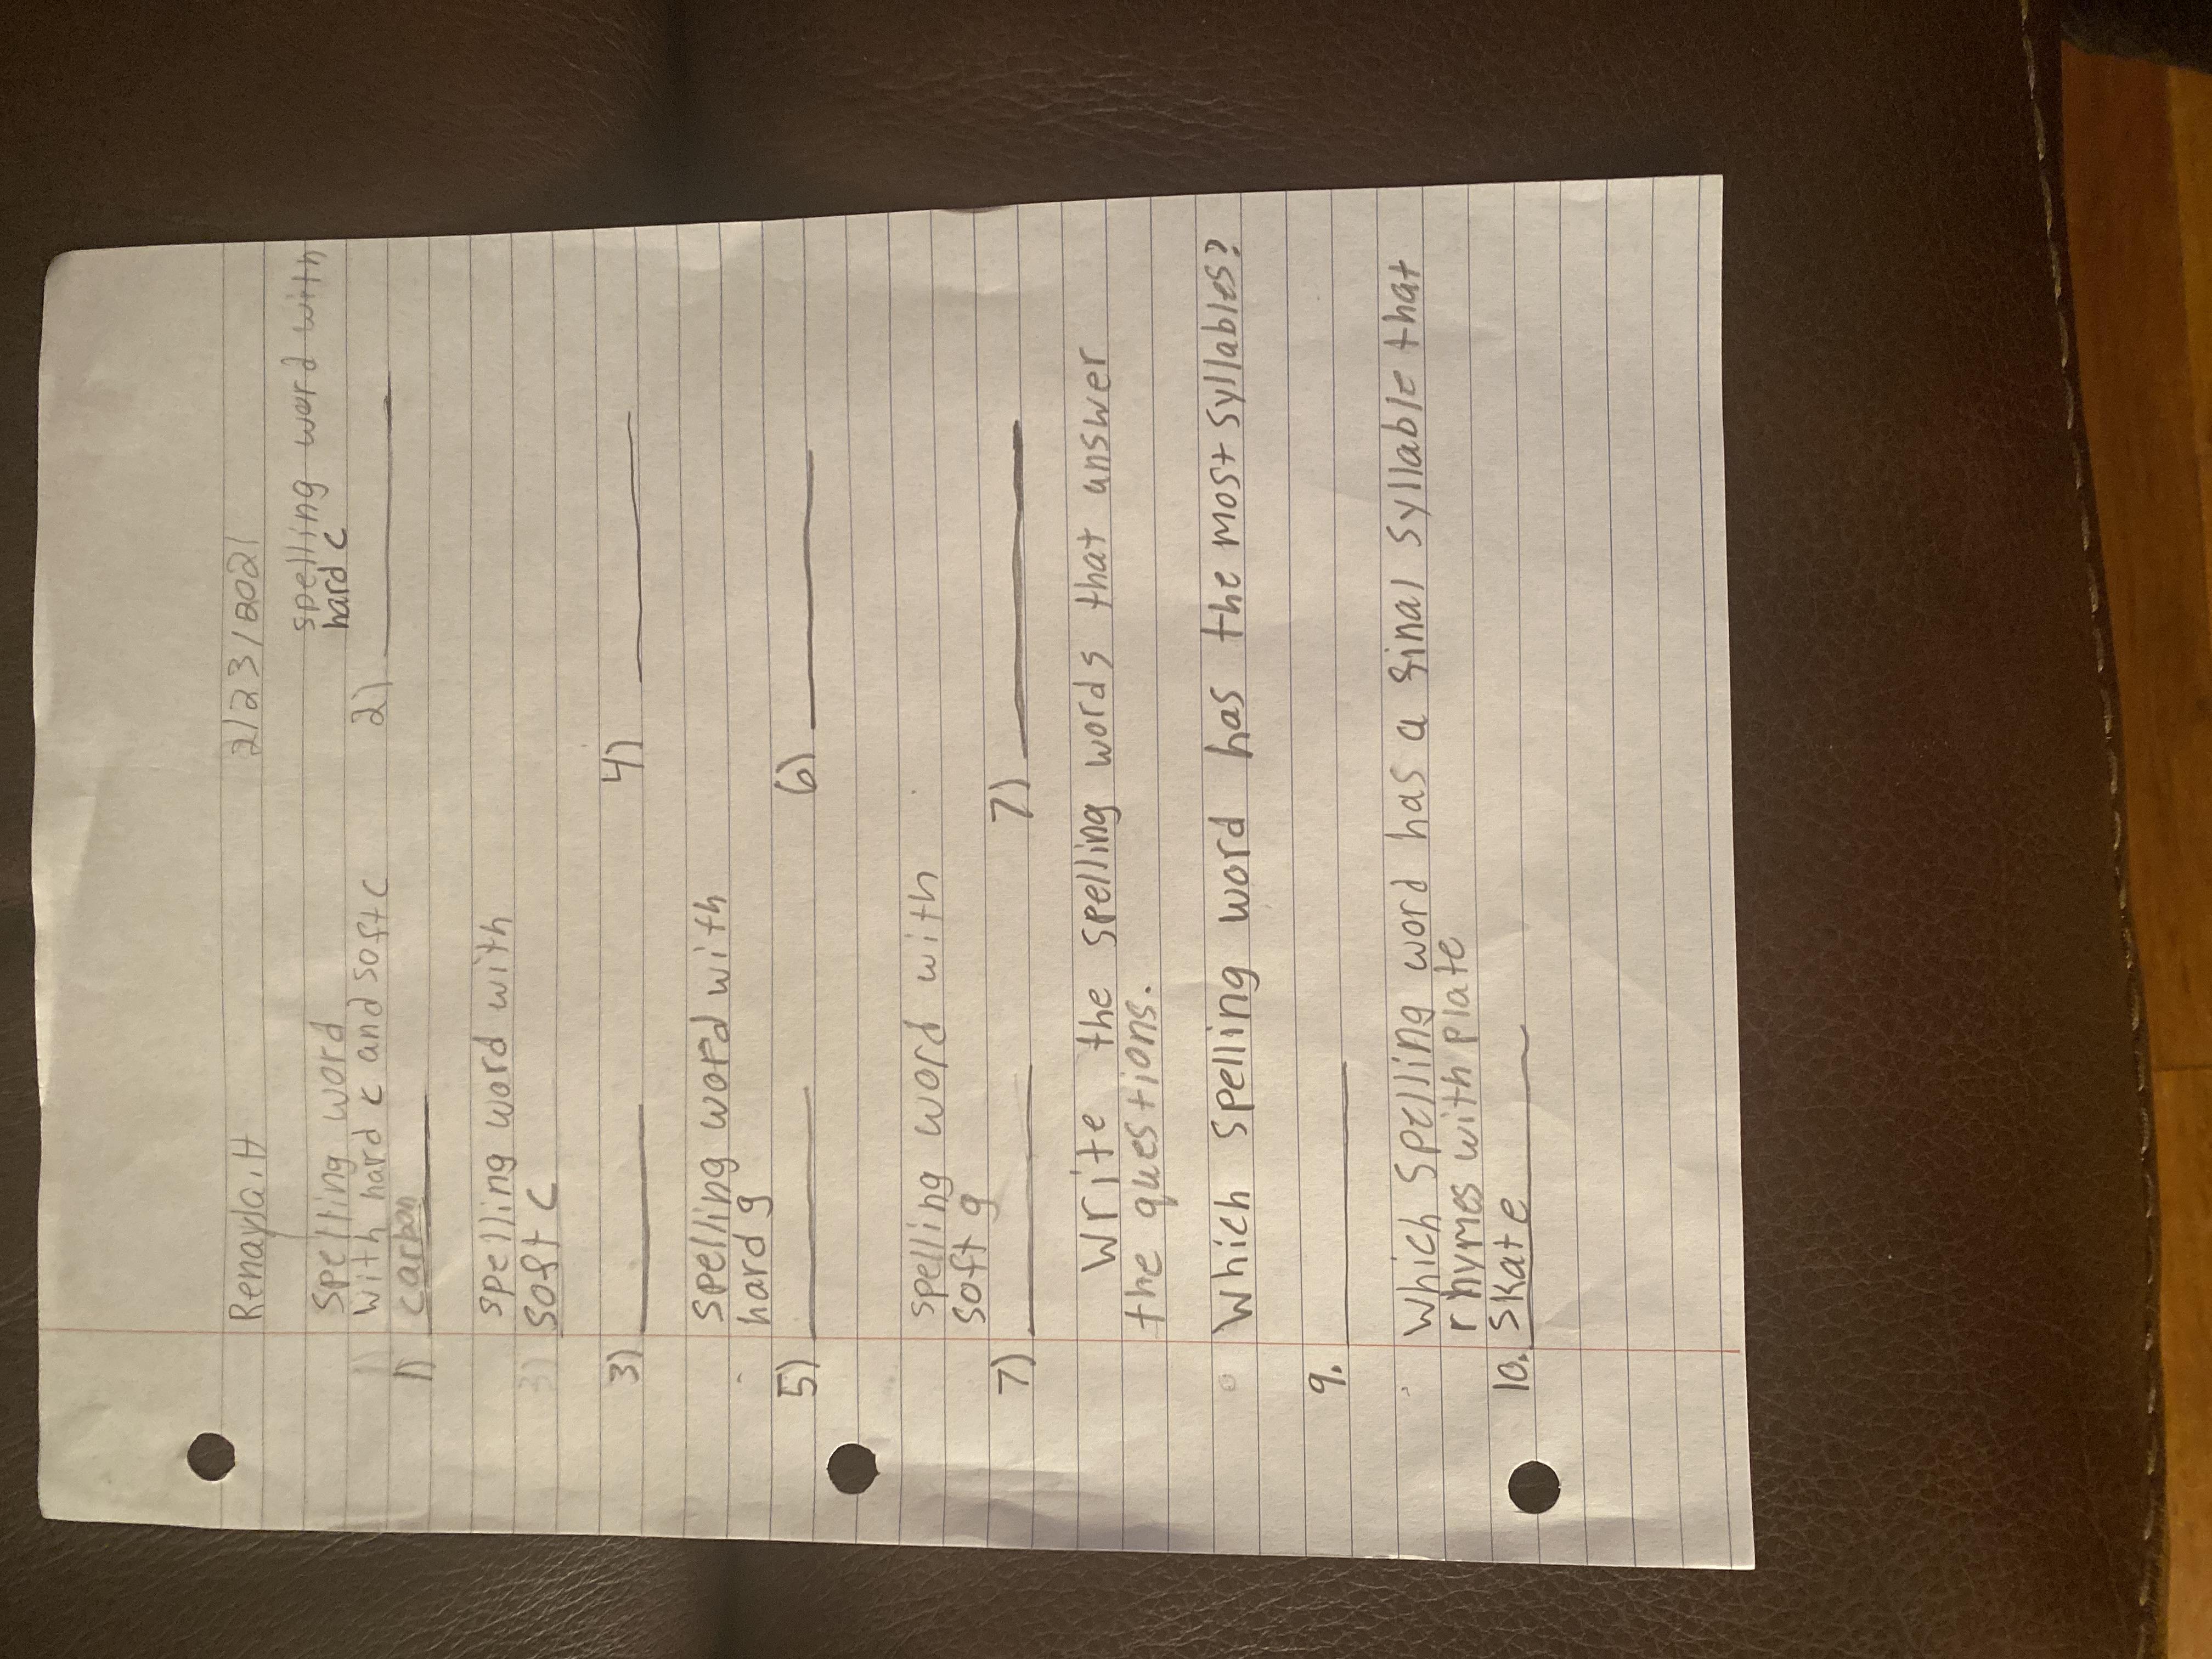 Renayla.H 2/23/2021
Spelling word spelling word with
with hard c and soft c hard c
1) 2)
1) carbon
spelling word with
3) soft c
3) 4)
spelling word with
hard g
5) 6)
spelling word with
soft g
7) 7)
Write the spelling words that answer
the questions.
Which spelling word has the most syllables?
9.
Which spelling word has a final syllable that
rhymes with plate
10. skate